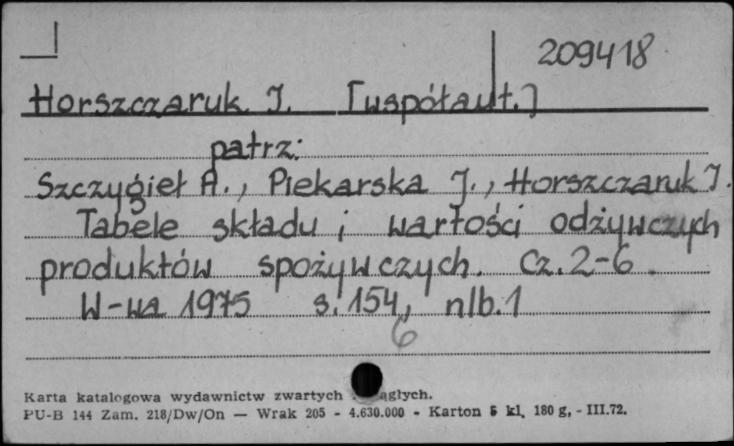 209418
Horszczaruk J. [współaut.]
patrz:
Szczygieł A., Piekarska J., Horszczaruk J.
Tabele składu i wartości odżywczych
produktów spożywczych. Cz. 2-6.
W-wa 1975 s. 154, nlb. 1
6
Karta katalogowa wydawnictw zwartych
PU-B 144 Zam. 218/Dw/On — Wrak 205 - 4.630.000 - Karton 5 kl, 180 g, - III.72.